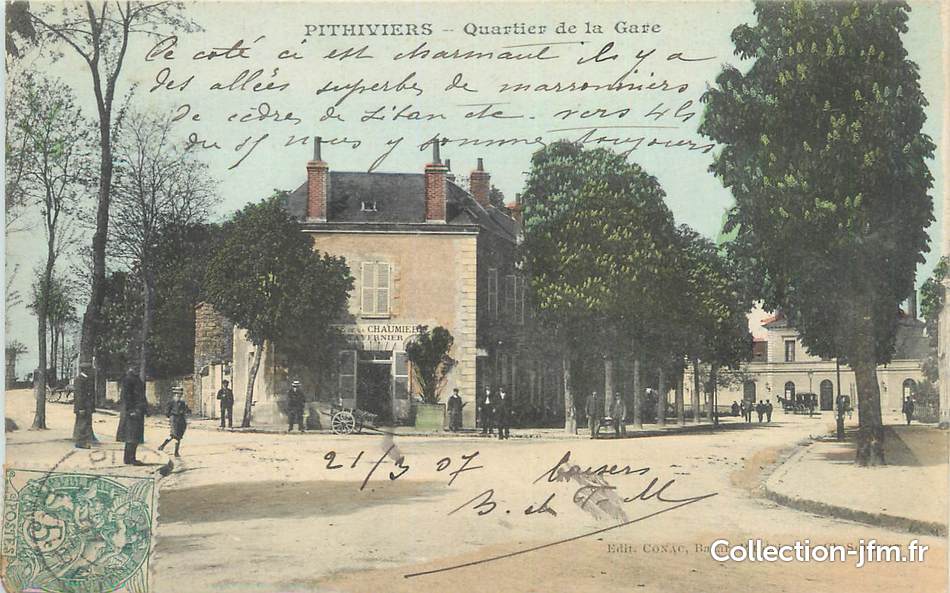 PITHIVIERS — Quartier de la Gare
Ce côté ci est charmant il y a
des allées superbes de marronniers
de cèdres de Liban etc. vers 4h
du s/r nous y sommes toujours
DE LA CHAUMIE
TAVERNIER
21/3 07 baisers
B. de
POSTES 5c
Edit. CONAC,
Collection-jfm.fr